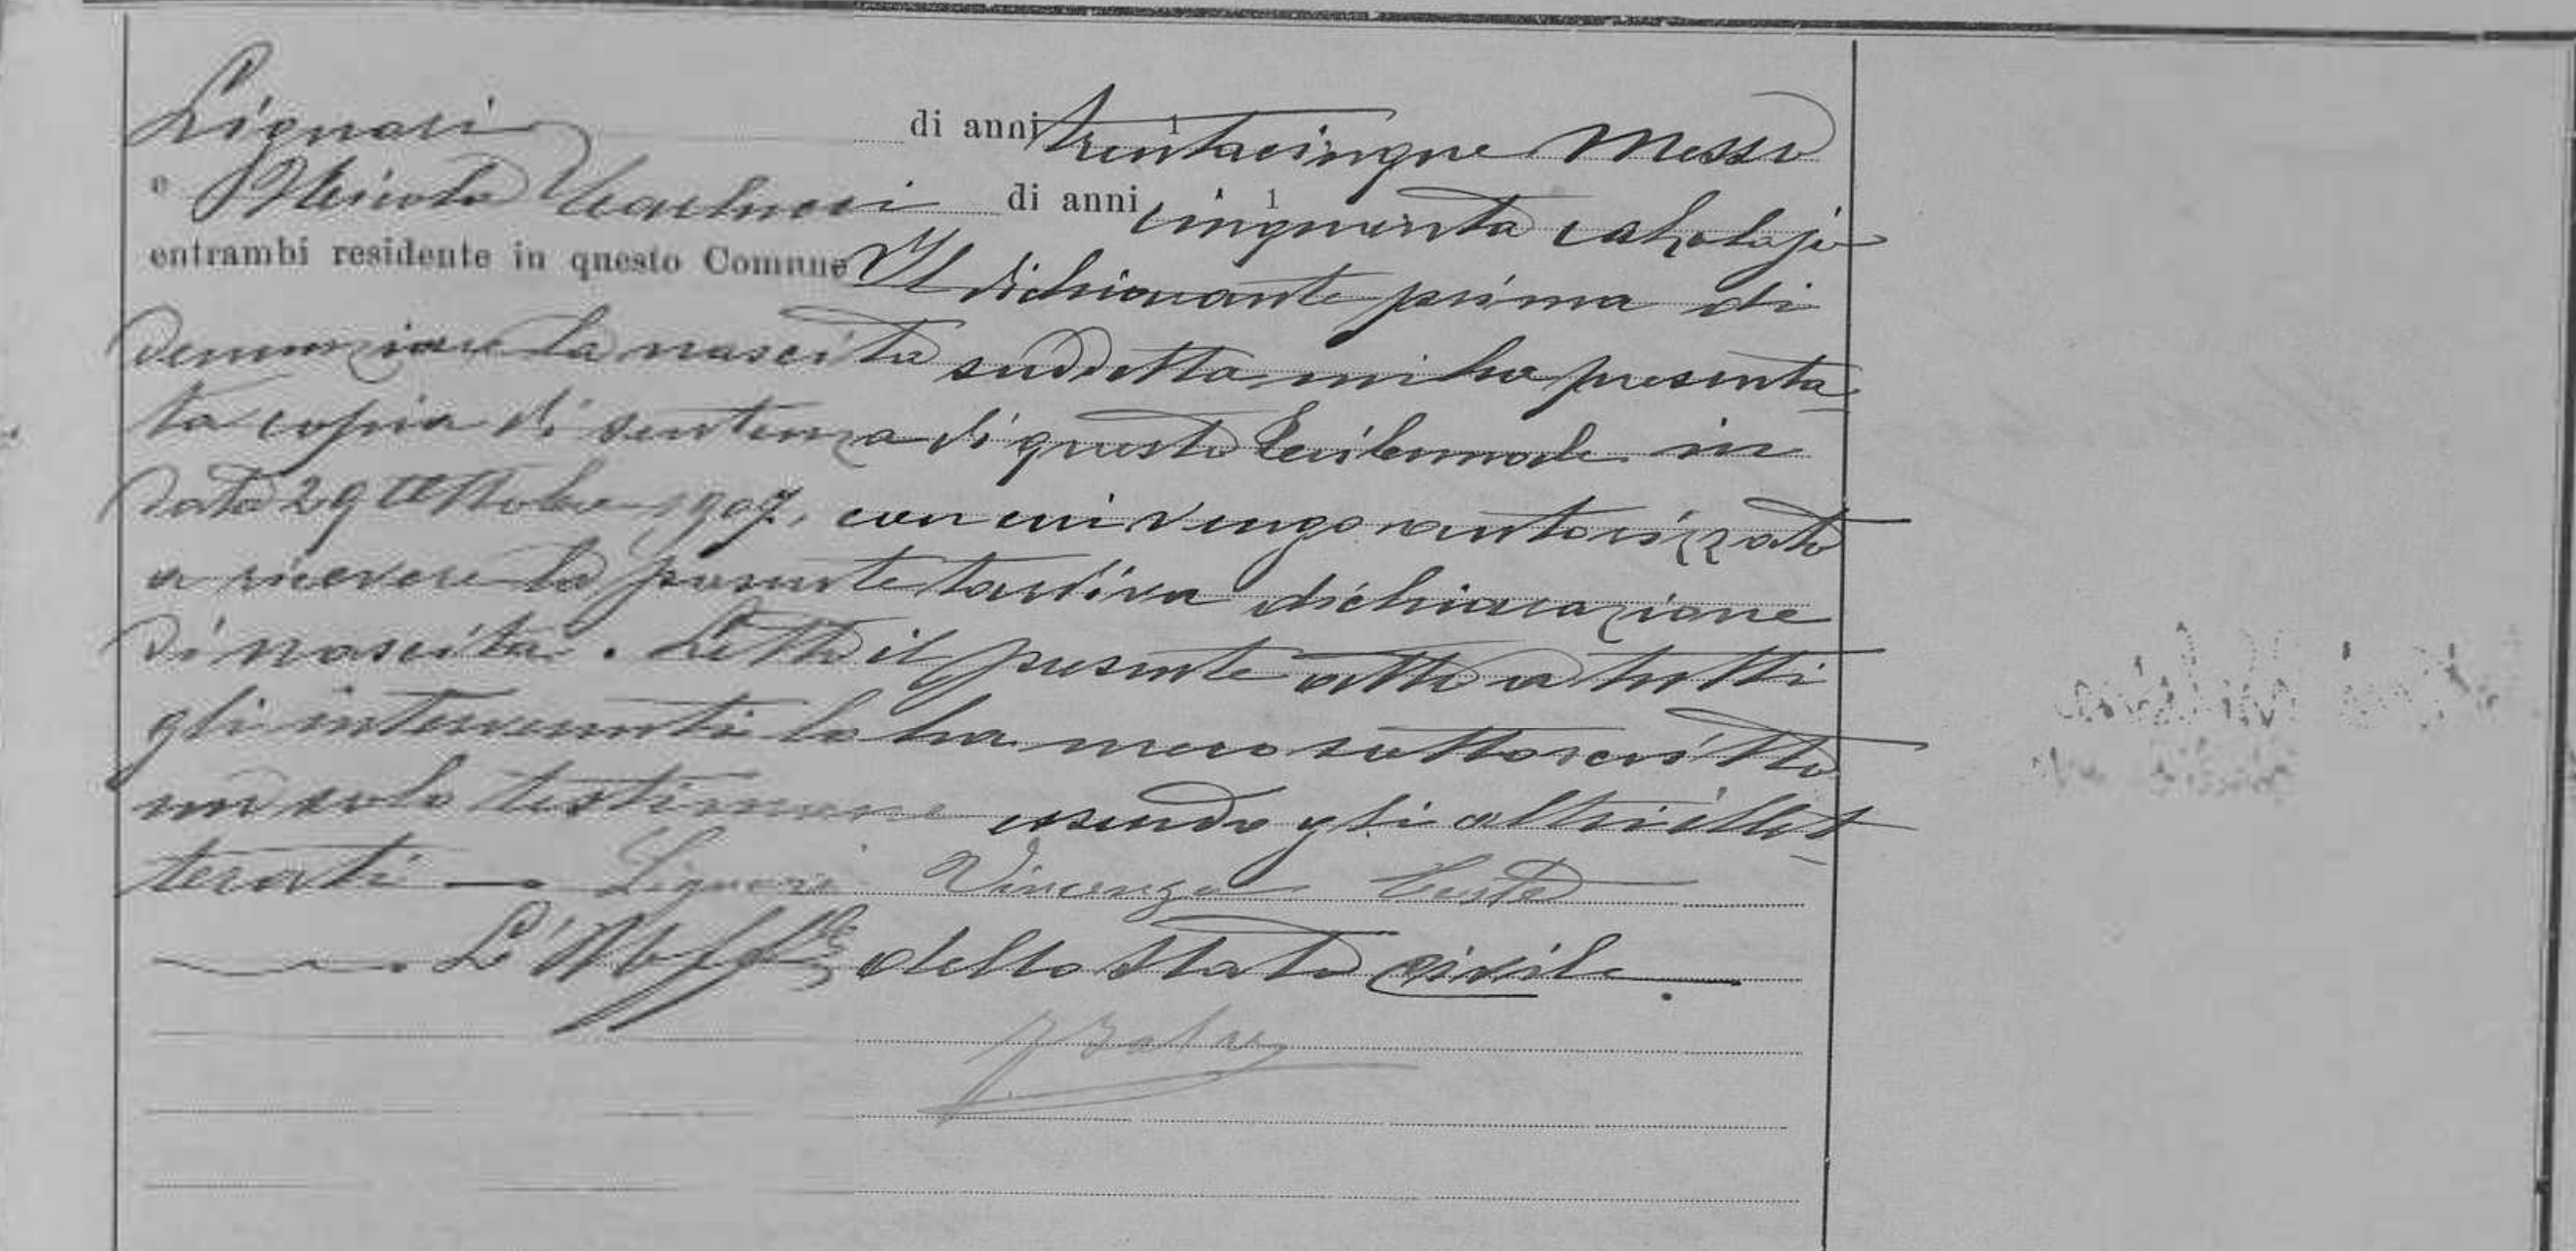 Liguori di anni trentacinque Messo
e Nicola Carlucci di anni cinquanta calzolajo
entrambi residente in questo Comune Il dichiarante prima di
denunziare la nascita suddetta mi ha presenta-
ta copia di sentenza di questo Tribunale in
data 29 Ottobre 1907, con cui vengo autorizzato
a ricevere la presente tardiva dichiarazione
di nascita. Letto il presente atto a tutti
gli intervenuti lo ha meco sottoscritto
un solo testimone essendo gli altri illet-
terati — Liguori Vincenzo Teste
L'Uffle dello Stato Civile